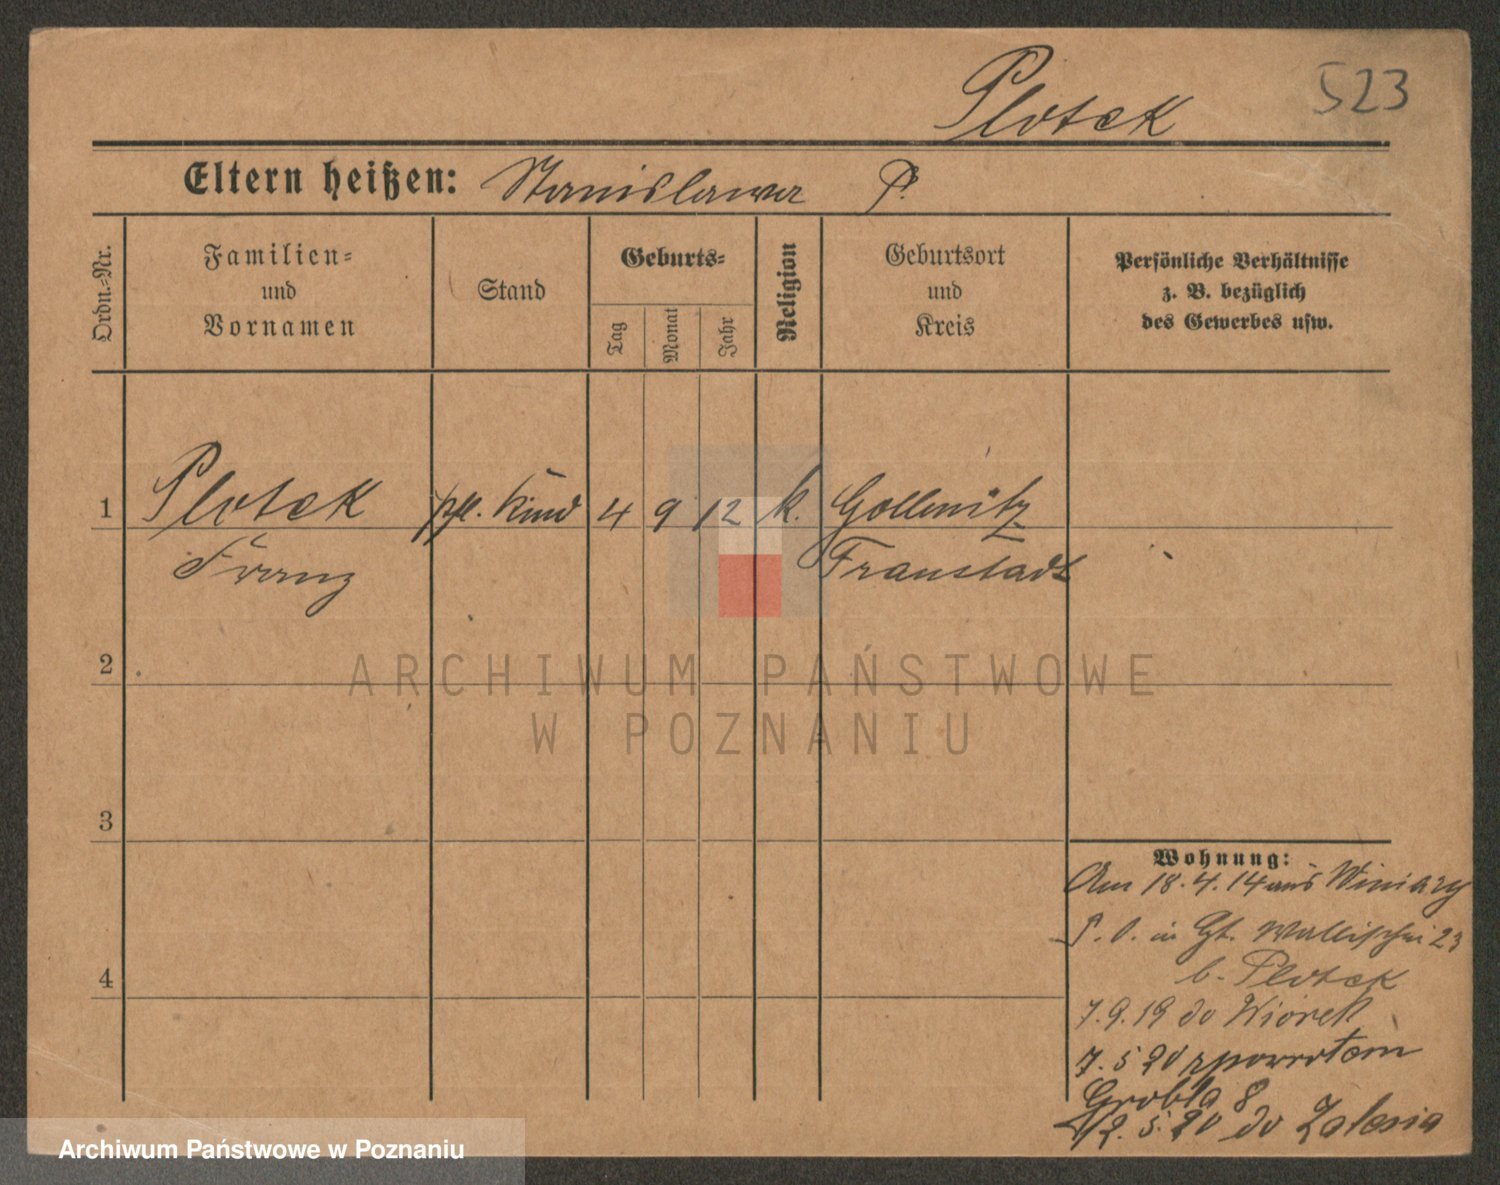 523
Plotek
Eltern heißen: Stanislawa P.
Ordn.-Nr.
Familien-
und
Vornamen
Stand
Geburts-
Tag
Monat
Jahr
Religion
Geburtsort
und
Kreis
Persönliche Verhältnisse
z. B. bezüglich
des Gewerbes usw.
1 Plotek pfl. Kind 4 9 12 k. Gollmitz
Franz Fraustadt
2
ARCHIWUM PAŃSTWOWE
W POZNANIU
3
Wohnung:
Am 18.4.14 aus Winiary
P.O. in Gt. Wallischei 23
b. Plotek
7.9.19 do Wiórek
7.5 20 zpowrotem
4
Grobla 8
12.5.20 do Zalesia
Archiwum Państwowe w Poznaniu